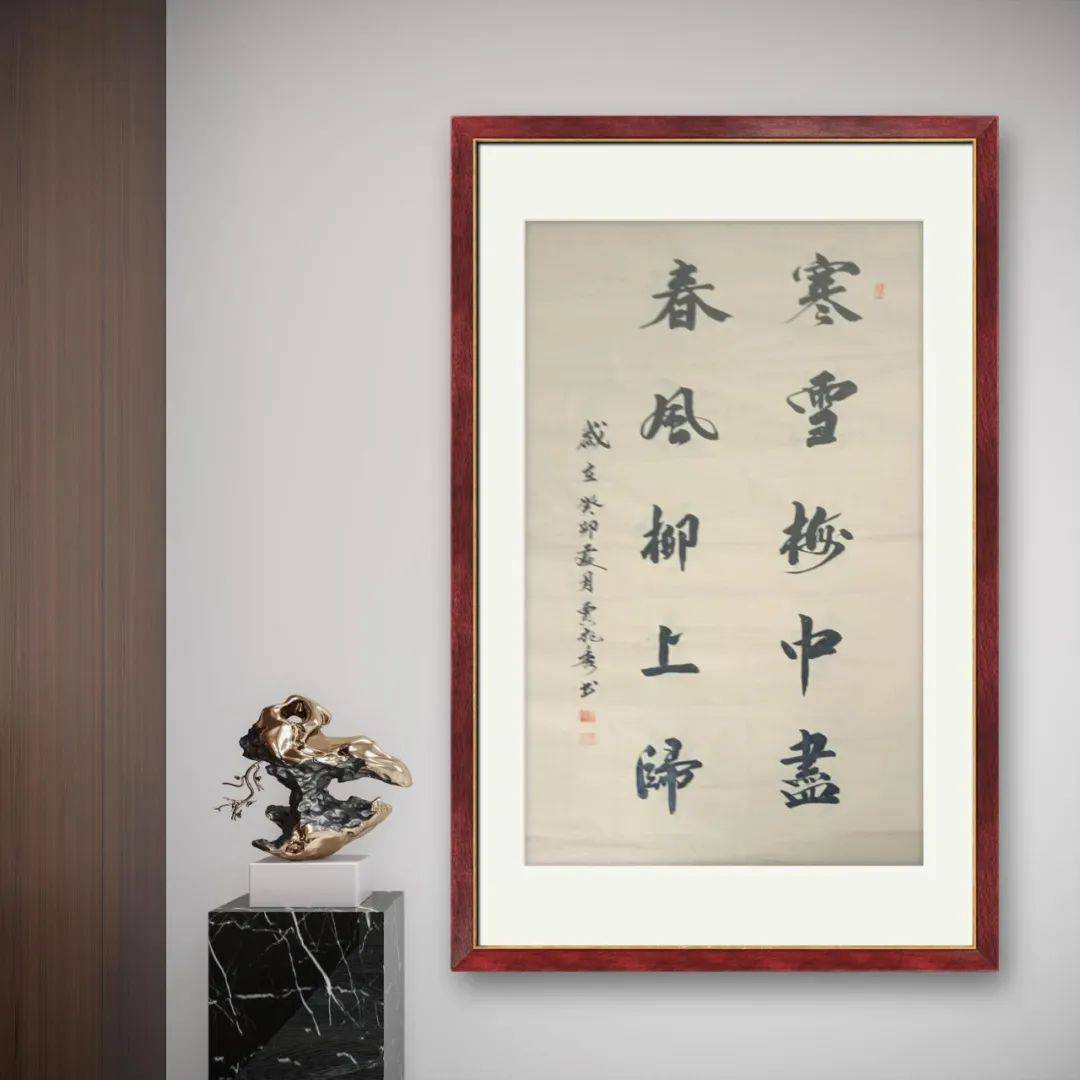 寒雪梅中盡
春風柳上歸
歲在癸卯夏月秀书